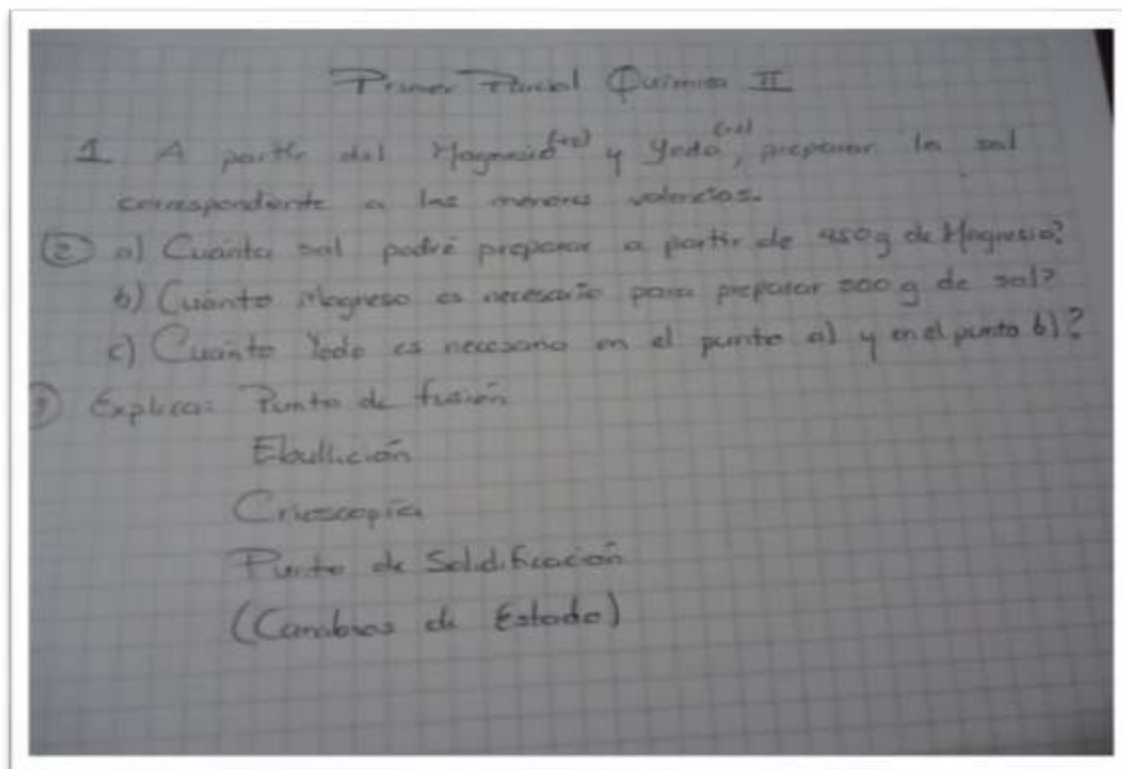 Primer Parcial Química II
1 A partir del Magnesio(+2) y Yodo, preparar la sal
correspondiente a las menores valencias.
② a) Cuánta sal podré preparar a partir de 450g de Magnesio?
b) Cuánto Magneso es necesario para preparar 500 g de sal?
c) Cuánto Yodo es necesario en el punto a) y en el punto b)?
③ Explica: Punto de fusión
Ebullición
Crioscopía
Punto de Solidificación
(Cambios de Estado)